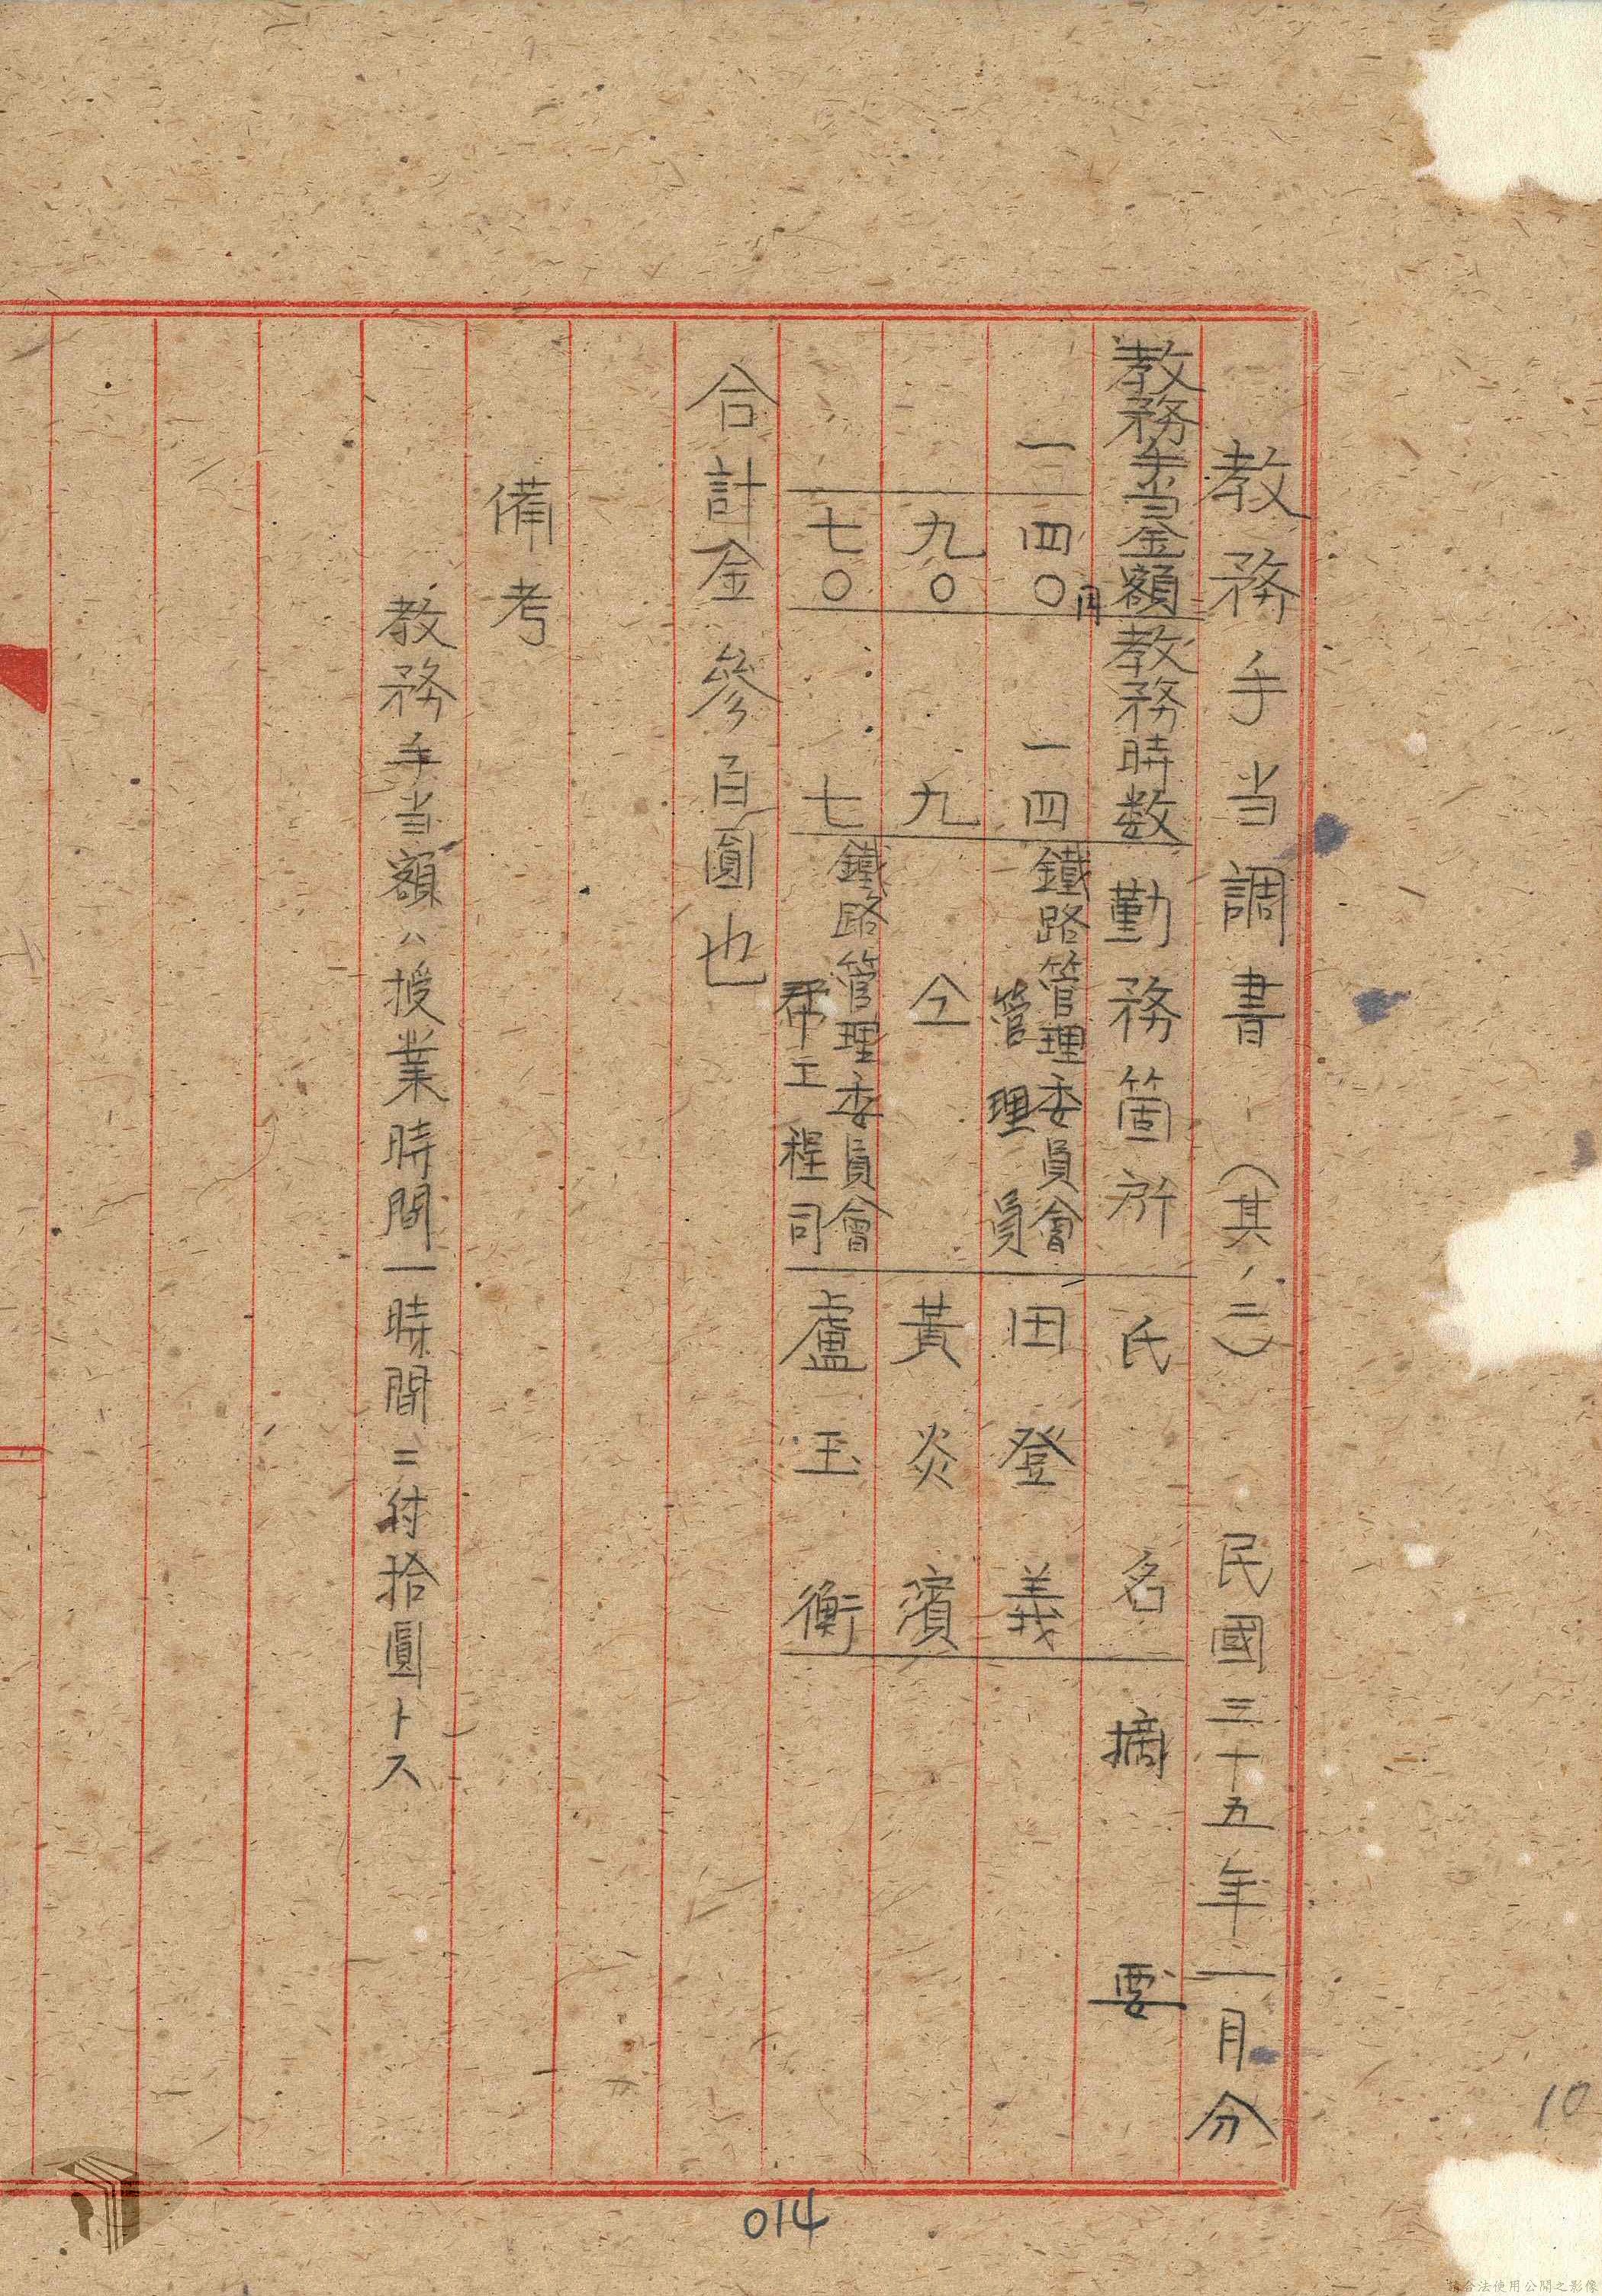 教務手当調書 (其ノ二) 民國三十五年一月分
教務手当金額 教務時数 勤務箇所 氏名 摘要
一四〇円 一四 鐵路管理委員會 管理員 田登義
九〇 九 仝 黃炎濱
七〇 七 鐵路管理委員會 幇工程司 盧玉衡
合計金參百圓也
備考
教務手当額ハ授業時間一時間ニ付拾圓トス
014
10
請合法使用公開之影像